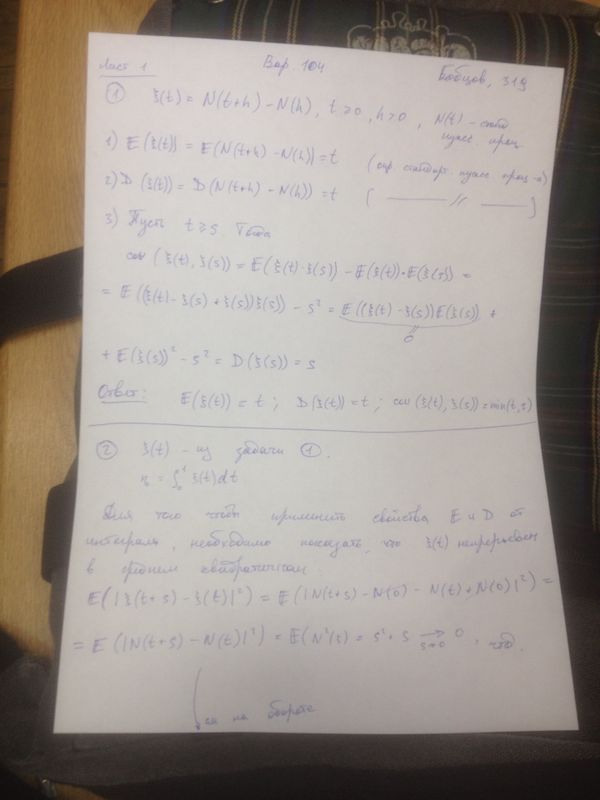 Лист 1 Вар. 104 Бобцов, 319
① ξ(t) = N(t+h) - N(h), t ≥ 0, h > 0, N(t) -
пуасс. проц.
1) E(ξ(t)) = E(N(t+h) - N(h)) = t ( стандарт. пуасс. проц-а)
2) D(ξ(t)) = D(N(t+h) - N(h)) = t ( —— // —— )
3) Пусть t ≥ s. Тогда
cov(ξ(t), ξ(s)) = E(ξ(t)·ξ(s)) - E(ξ(t))·E(ξ(s)) =
= E((ξ(t) - ξ(s) + ξ(s))ξ(s)) - s² = E((ξ(t) - ξ(s))E(ξ(s)) +
0
+ E(ξ(s))² - s² = D(ξ(s)) = s
Ответ: E(ξ(t)) = t; D(ξ(t)) = t; cov(ξ(t), ξ(s)) = min(t, s)
② ξ(t) - из задачи ①.
η = ∫₀¹ ξ(t)dt
Для того чтобы применить свойства E и D от
интеграла, необходимо показать, что ξ(t) непрерывен
в среднем квадратичном.
E(|ξ(t+s) - ξ(t)|²) = E(|N(t+s) - N(0) - N(t) + N(0)|²) =
= E(|N(t+s) - N(t)|²) = E(N²(s) = s² + s → 0, чтд.
s→0
см на обороте